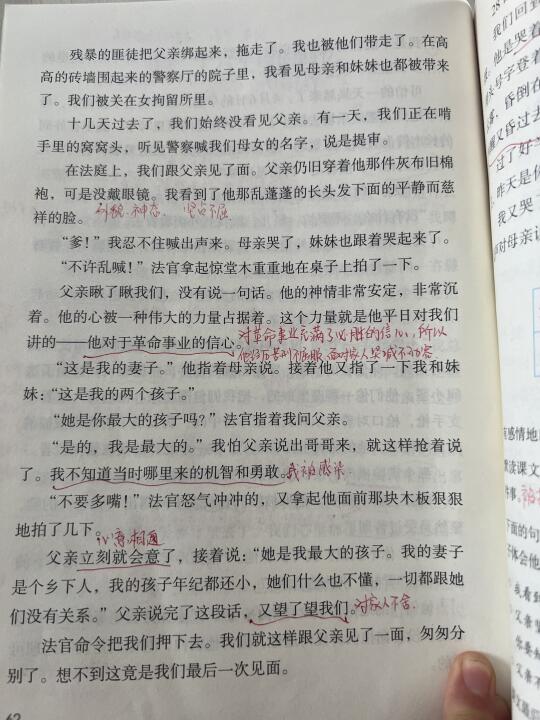 残暴的匪徒把父亲绑起来，拖走了。我也被他们带走了。在高
高的砖墙围起来的警察厅的院子里，我看见母亲和妹妹也都被带来
了。我们被关在女拘留所里。
十几天过去了，我们始终没看见父亲。有一天，我们正在啃
手里的窝窝头，听见警察喊我们母女的名字，说是提审。
在法庭上，我们跟父亲见了面。父亲仍旧穿着他那件灰布旧棉
袍，可是没戴眼镜。我看到了他那乱蓬蓬的长头发下面的平静而慈
祥的脸。
外貌 神态 坚贞不屈
“爹！”我忍不住喊出声来。母亲哭了，妹妹也跟着哭起来了。
“不许乱喊！”法官拿起惊堂木重重地在桌子上拍了一下。
父亲瞅了瞅我们，没有说一句话。他的神情非常安定，非常沉
着。他的心被一种伟大的力量占据着。这个力量就是他平日对我们
讲的——他对于革命事业的信心。
对革命事业充满了必胜的信心，所以
“这是我的妻子。”他指着母亲说。接着他又指了一下我和妹
妹：“这是我的两个孩子。”
“她是你最大的孩子吗？”法官指着我问父亲。
“是的，我是最大的。”我怕父亲说出哥哥来，就这样抢着说
了。我不知道当时哪里来的机智和勇敢。
我被感染
“不要多嘴！”法官怒气冲冲的，又拿起他面前那块木板狠狠
地拍了几下。
心有相通
父亲立刻就会意了，接着说：“她是我最大的孩子。我的妻子
是个乡下人，我的孩子年纪都还小，她们什么也不懂，一切都跟她
们没有关系。”父亲说完了这段话，又望了望我们。
对家人不舍
法官命令把我们押下去。我们就这样跟父亲见了一面，匆匆分
别了。想不到这竟是我们最后一次见面。
62
我们回到
他是哭着
昏倒在
又昏过去
过了好
昨天是你
我又哭了
对母亲说
有感情地
默读课文
下面的句